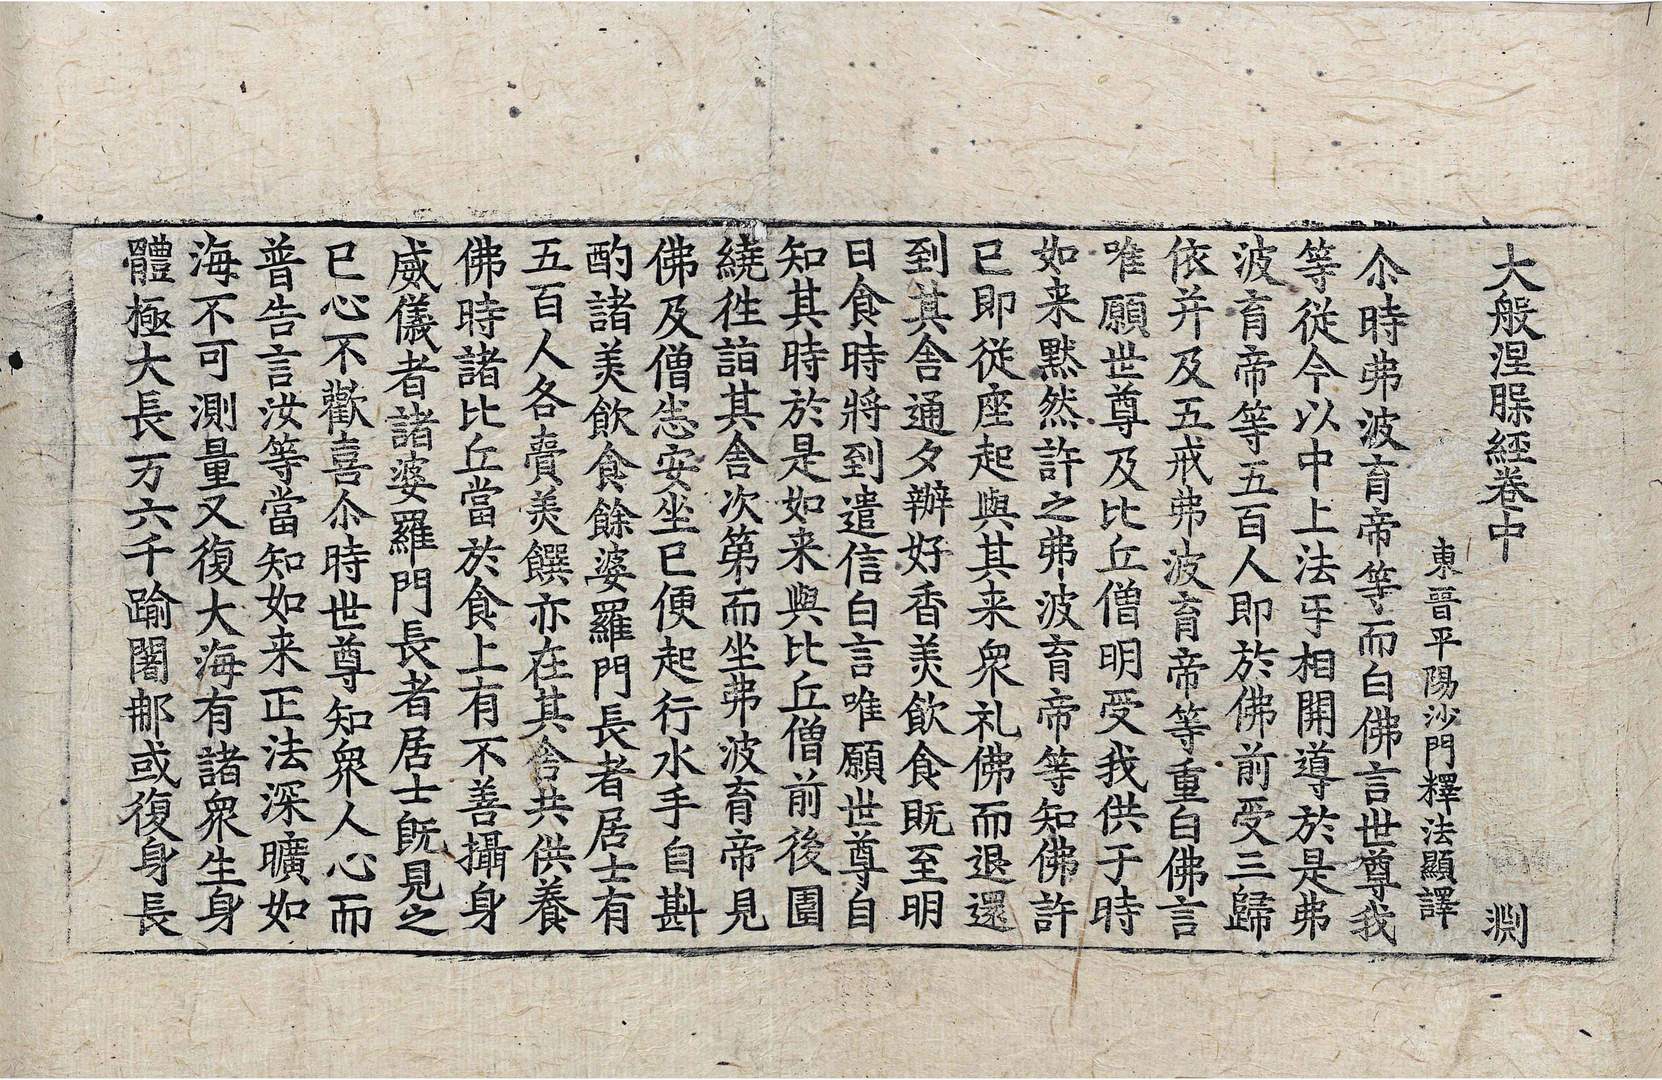 大般涅槃經卷中　淵
東晉平陽沙門釋法顯譯
尒時弗波育帝等而白佛言世尊我
等從今以中上法㸦相開導於是弗
波育帝等五百人即於佛前受三歸
依并及五戒弗波育帝等重白佛言
唯願世尊及比丘僧明受我供于時
如来默然許之弗波育帝等知佛許
已即從座起與其来衆礼佛而退還
到其舍通夕辦好香美飲食既至明
日食時將到遣信白言唯願世尊自
知其時於是如来與比丘僧前後圍
繞徃詣其舍次第而坐弗波育帝見
佛及僧悉安坐已便起行水手自斟
酌諸美飲食餘婆羅門長者居士有
五百人各賷美饌亦在其舍共供養
佛時諸比丘當於食上有不善攝身
威儀者諸婆羅門長者居士旣見之
已心不歡喜尒時世尊知衆人心而
普告言汝等當知如来正法深曠如
海不可測量又復大海有諸衆生身
體極大長一万六千踰闍那或復身長